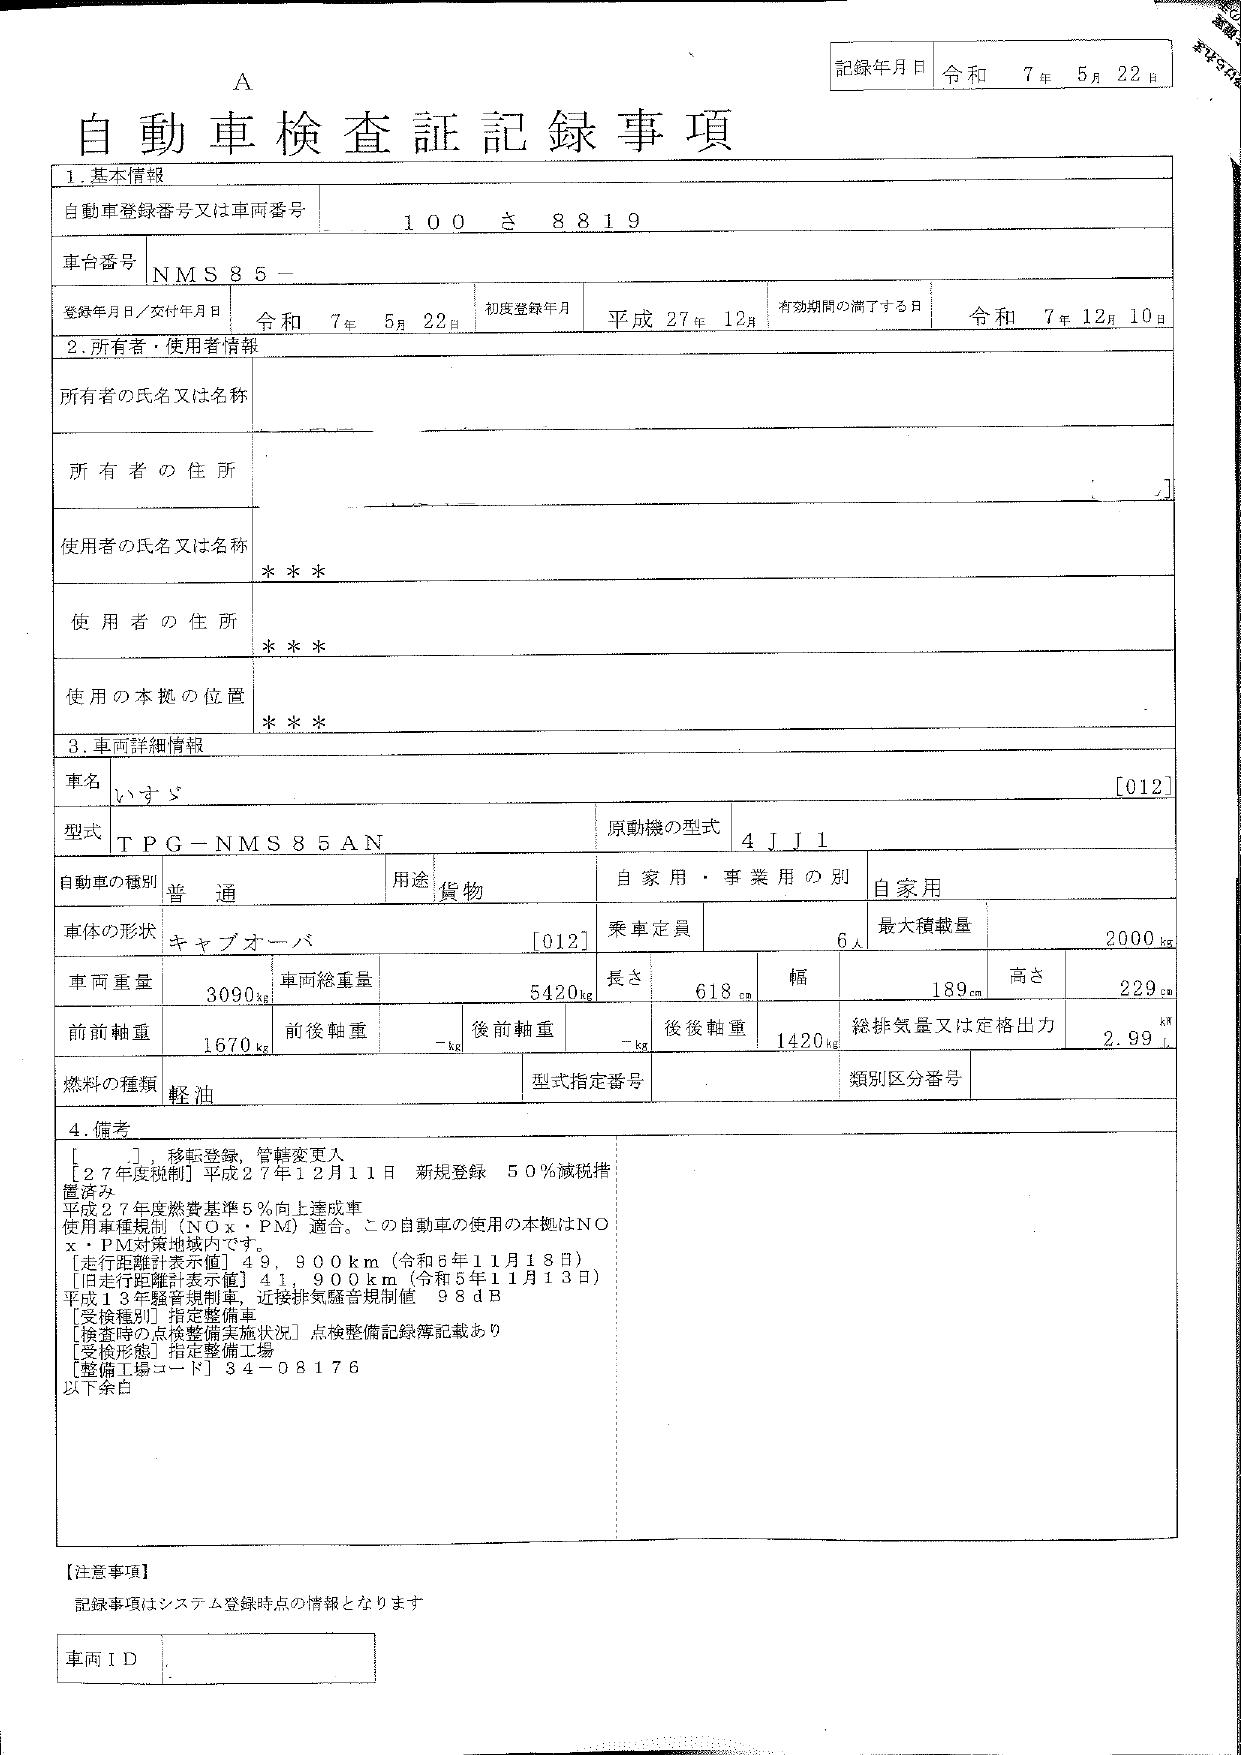 記録年月日 令和 7年 5月 22日
A
自動車検査証記録事項
1.基本情報
自動車登録番号又は車両番号 100 さ 8819
車台番号 NMS85-
登録年月日/交付年月日 令和 7年 5月 22日 初度登録年月 平成 27年 12月 有効期間の満了する日 令和 7年 12月 10日
2.所有者・使用者情報
所有者の氏名又は名称
所有者の住所 ]
使用者の氏名又は名称 ***
使用者の住所 ***
使用の本拠の位置 ***
3.車両詳細情報
車名 いすゞ [012]
型式 TPG-NMS85AN 原動機の型式 4JJ1
自動車の種別 普通 用途 貨物 自家用・事業用の別 自家用
車体の形状 キャブオーバ [012] 乗車定員 6人 最大積載量 2000kg
車両重量 3090kg 車両総重量 5420kg 長さ 618cm 幅 189cm 高さ 229cm
前前軸重 1670kg 前後軸重 -kg 後前軸重 -kg 後後軸重 1420kg 総排気量又は定格出力 2.99 kW L
燃料の種類 軽油 型式指定番号 類別区分番号
4.備考
[ ],移転登録,管轄変更入
[27年度税制]平成27年12月11日 新規登録 50%減税措
置済み
平成27年度燃費基準5%向上達成車
使用車種規制(NOx・PM)適合。この自動車の使用の本拠はNO
x・PM対策地域内です。
[走行距離計表示値]49,900km(令和6年11月18日)
[旧走行距離計表示値]41,900km(令和5年11月13日)
平成13年騒音規制車,近接排気騒音規制値 98dB
[受検種別]指定整備車
[検査時の点検整備実施状況]点検整備記録簿記載あり
[受検形態]指定整備工場
[整備工場コード]34-08176
以下余白
【注意事項】
記録事項はシステム登録時点の情報となります
車両ID